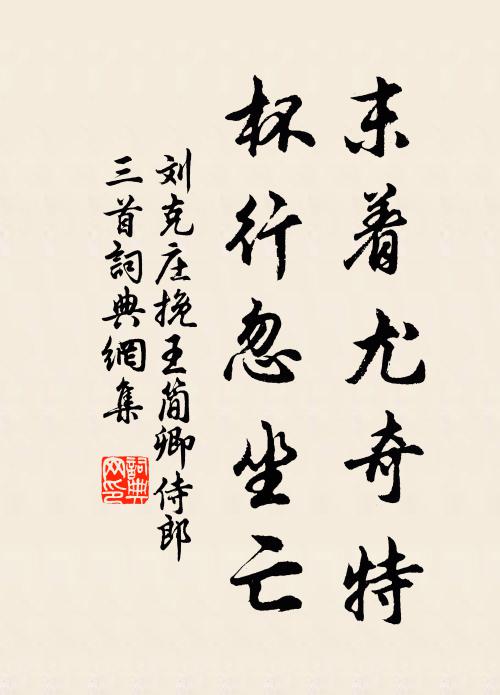 末着尤奇特
杯行忽坐亡
刘克庄挽王简卿侍郎
三首詞典網集
詞典网印